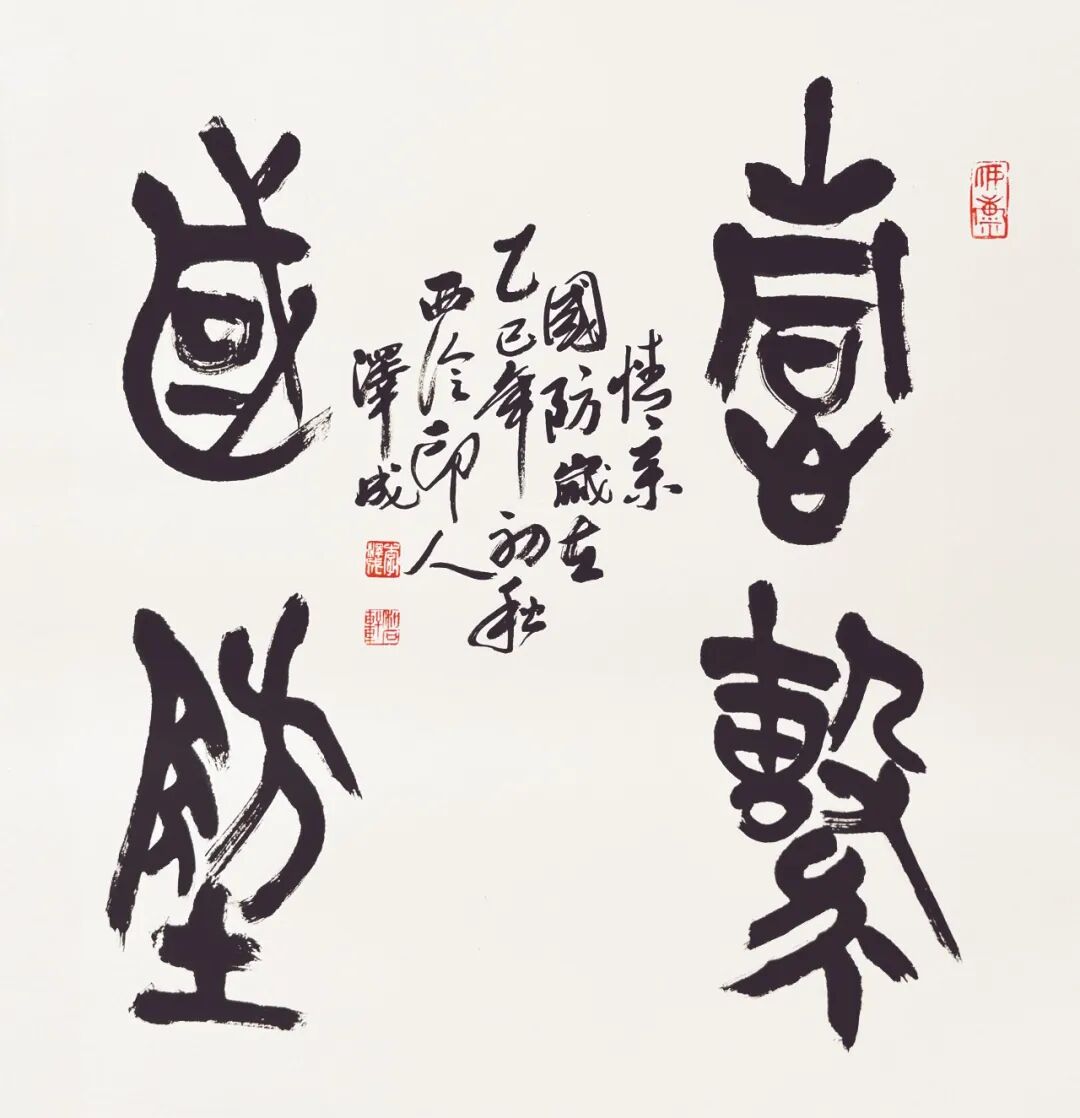 情繫
國防
情系
國防歲在
乙巳年初秋
西泠印人
澤成